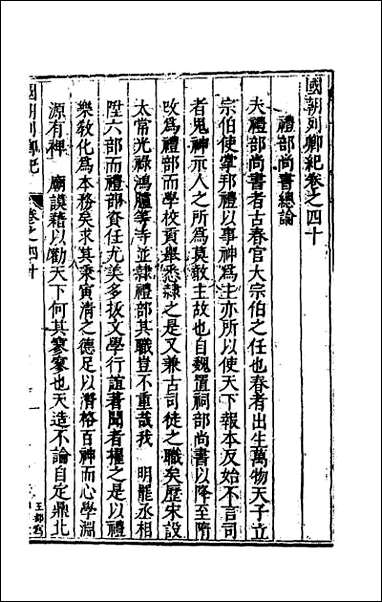 國朝列卿紀卷之四十
禮部尚書總論
夫禮部尚書者古春官大宗伯之任也春者出生萬物天子立
宗伯使掌邦禮以事神爲主亦所以使天下報本反始不言司
者鬼神示人之所爲莫敢主故也自魏置祠部尚書以降至隋
改爲禮部而學校貢舉悉隷之是又兼古司徒之職矣歷宋設
太常光祿鴻臚等寺並隷禮部其職豈不重哉我 明罷丞相
陞六部而禮部資任尤美多拔文學行誼著聞者擢之是以禮
樂敎化爲本務矣求其秉寅清之德足以潛格百神而心學淵
源有裨 廟謨藉以勸天下何其寥寥也天造不論自定鼎北
國朝列卿紀 卷之四十 一